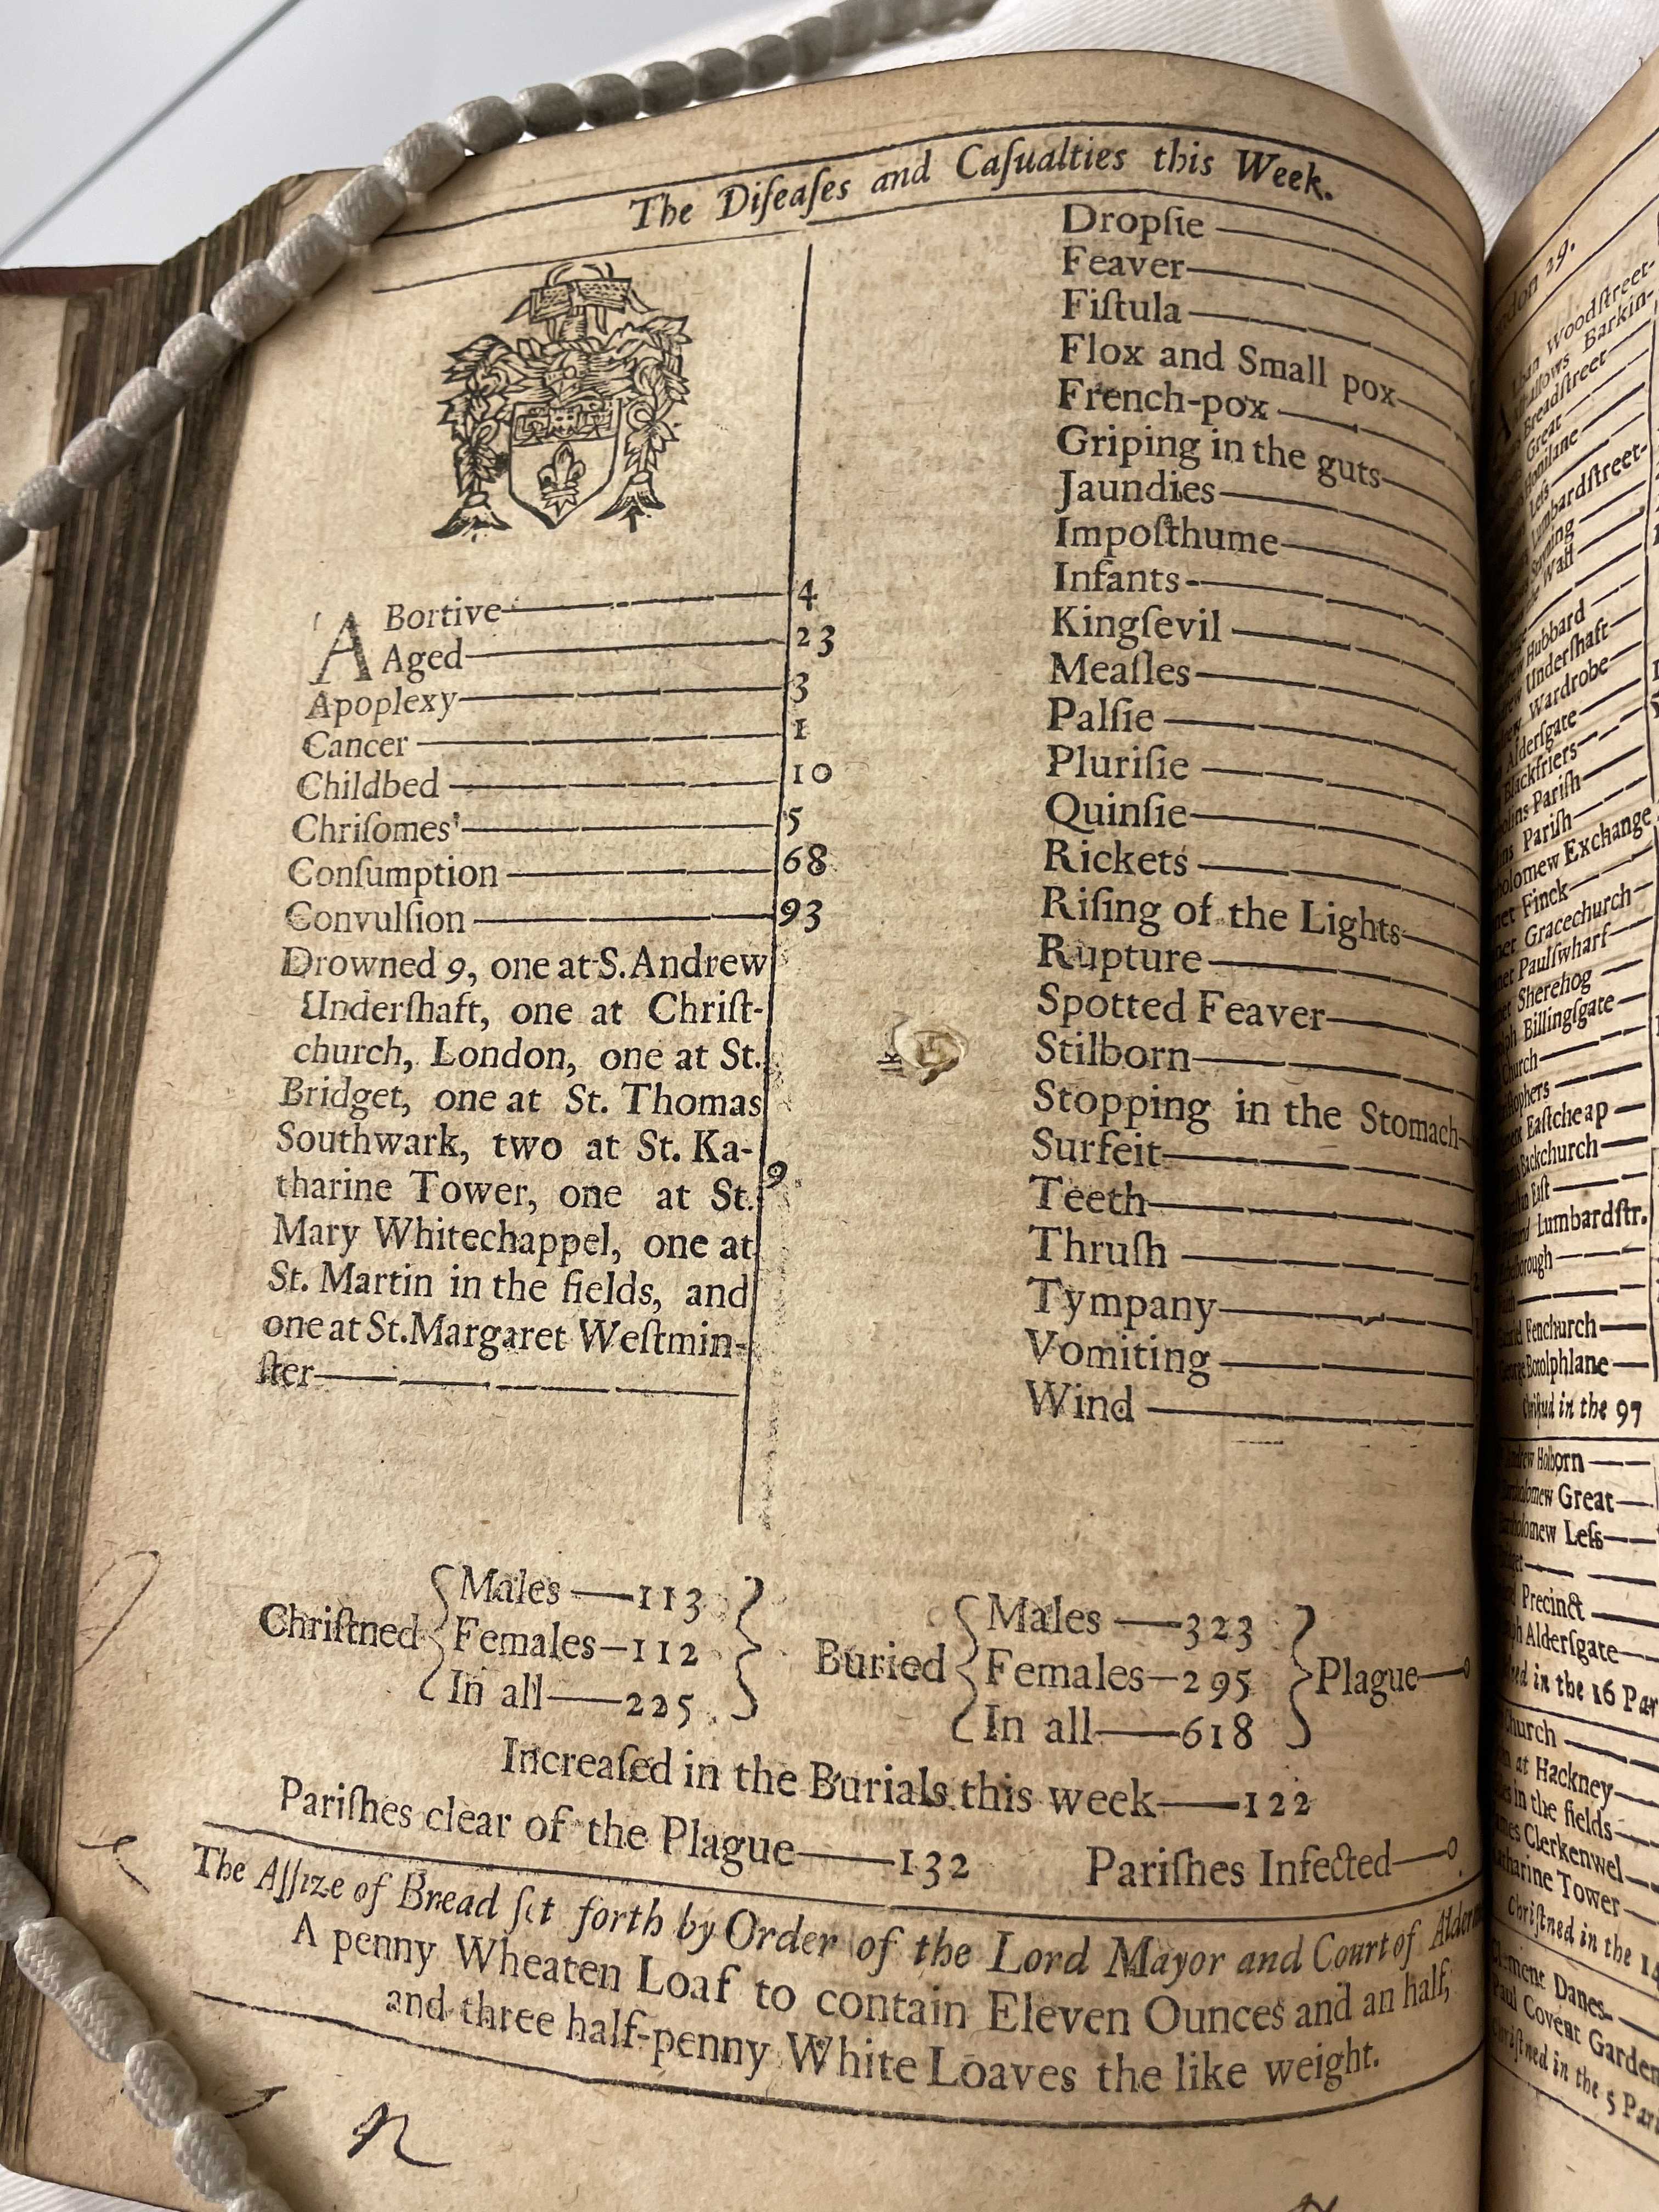 The Diſeaſes and Caſualties this Week.
ABortive 4
Aged 23
Apoplexy 3
Cancer 1
Childbed 10
Chriſomes 5
Conſumption 68
Convulſion 93
Drowned 9, one at S. Andrew
Underſhaft, one at Chriſt-
church, London, one at St.
Bridget, one at St. Thomas
Southwark, two at St. Ka-
tharine Tower, one at St. 9
Mary Whitechappel, one at
St. Martin in the fields, and
one at St. Margaret Weſtmin-
ſter
Dropſie
Feaver
Fiſtula
Flox and Small pox
French-pox
Griping in the guts
Jaundies
Impoſthume
Infants
Kingſevil
Meaſles
Palſie
Pluriſie
Quinſie
Rickets
Riſing of the Lights
Rupture
Spotted Feaver
Stilborn
Stopping in the Stomach
Surfeit
Teeth
Thruſh
Tympany
Vomiting
Wind
Chriſtned
Males 113
Females 112
In all 225
Buried
Males 323
Females 295
In all 618
Plague 0
Increaſed in the Burials this week 122
Pariſhes clear of the Plague 132 Pariſhes Infected 0
The Aſſize of Bread ſet forth by Order of the Lord Mayor and Court of
A penny Wheaten Loaf to contain Eleven Ounces and an half,
and three half-penny White Loaves the like weight.
29.
Woodſtreet
Barkin-
Breadſtreet
Great
Leſs
Lumbardſtreet
Wall
Hubbard
Underſhaft
Wardrobe
Alderſgate
Blackfriers
Pariſh
Pariſh
Exchange
Finck
Gracechurch
Paulſwharf
Sherehog
Billingſgate
Church
Eaſtcheap
Backchurch
Eaſt
Lumbardſtr.
Fenchurch
Botolphlane
in the 97
Holborn
Great
Leſs
Precinct
Alderſgate
in the 16
Church
at Hackney
in the fields
Clerkenwel
Tower
Chriſtned in the 14
Danes
Covent Garden
in the 5